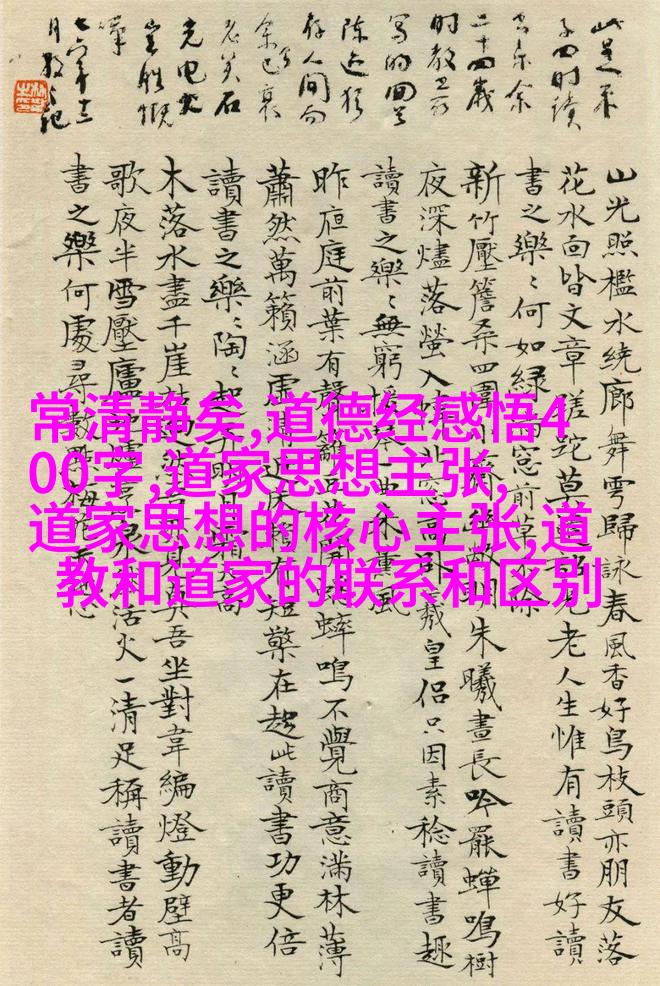 此是朱
子四时读
书乐余
二十四歲
时教
写的四首
陈迹犹
存人间而
余已衰
老矣石
光电火
岂胜慨
嘆
七六年十二
月敬之记
山光照檻水繞廊舞雩歸詠春風香好鳥枝頭亦朋友落
花水面皆文章蹉跎莫老人生惟有讀書好讀
書之樂〻何如綠窓前草除
新竹壓簷桑四圍齋敞明朱曦晝長吟罷蟬鳴樹
夜深燼落螢入幃北窓高卧羲皇侣只因素稔讀書趣
讀書之樂〻無窮一曲來薰風
昨夜庭前葉有聲籬豆花開蟋蟀鳴不覺商意滿林薄
蕭然萬籟涵虛清近床賴有短檠在趁此讀書功更倍
讀書之樂〻陶〻起弄明月霜天高
木落水盡千崖枯迥見真吾坐對韋編燈動壁高
歌夜半雪壓廬爐烹活火一清足稱讀書者讀
書之樂何處尋數點梅花天心
常清静矣,道德经感悟4
00字,道家思想主张,
道家思想的核心主张,道
教和道家的联系和区别